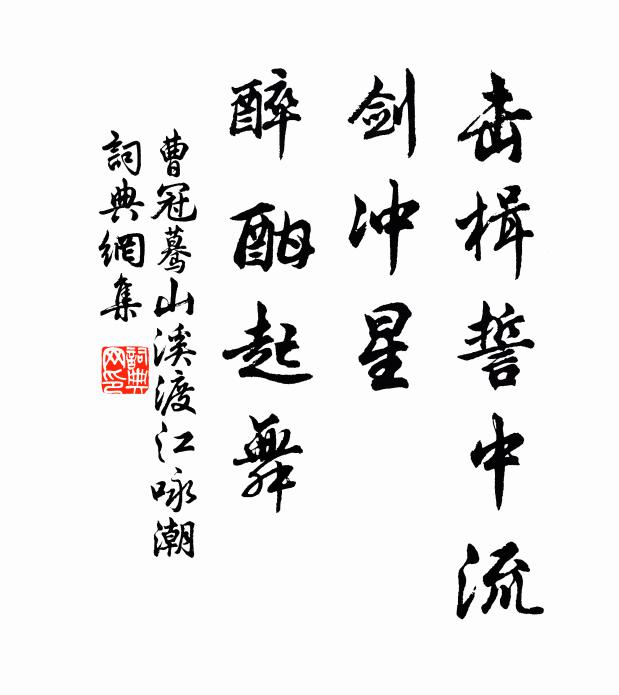 击楫誓中流
剑冲星
醉酣起舞
曹冠蓦山溪渡江咏潮
词典網集
词典网印